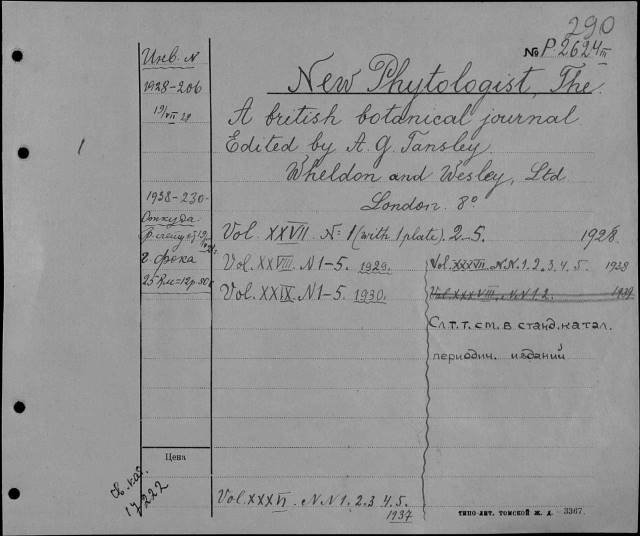 290
№ P2624 III
New Phytologist, The.
A british botanical journal
Edited by A. G. Tansley.
Wheldon and Wesley, Ltd
London. 8°
Vol. XXVII. N= 1 (with 1 plate). 2-5. 1928.
Vol. XXVIII. N 1-5. 1929.
Vol. XXIX. N 1-5. 1930.
Vol. XXXVII. N.N. 1. 2. 3. 4. 5. 1938
Vol. XXXVIII. N.N 1. 2. 1939
Сл. т. т. см. в станд. катал.
периодич. изданий
Vol. XXXVI. N.N 1. 2. 3 4. 5.
1937
Инв. N
1928-206
19/VII 28
1938-230
Откуда
г. фока
25 Rm=12р.80к
Цена
1
17222
ТИПО-ЛИТ. ТОМСКОЙ Ж. Д. 3367.